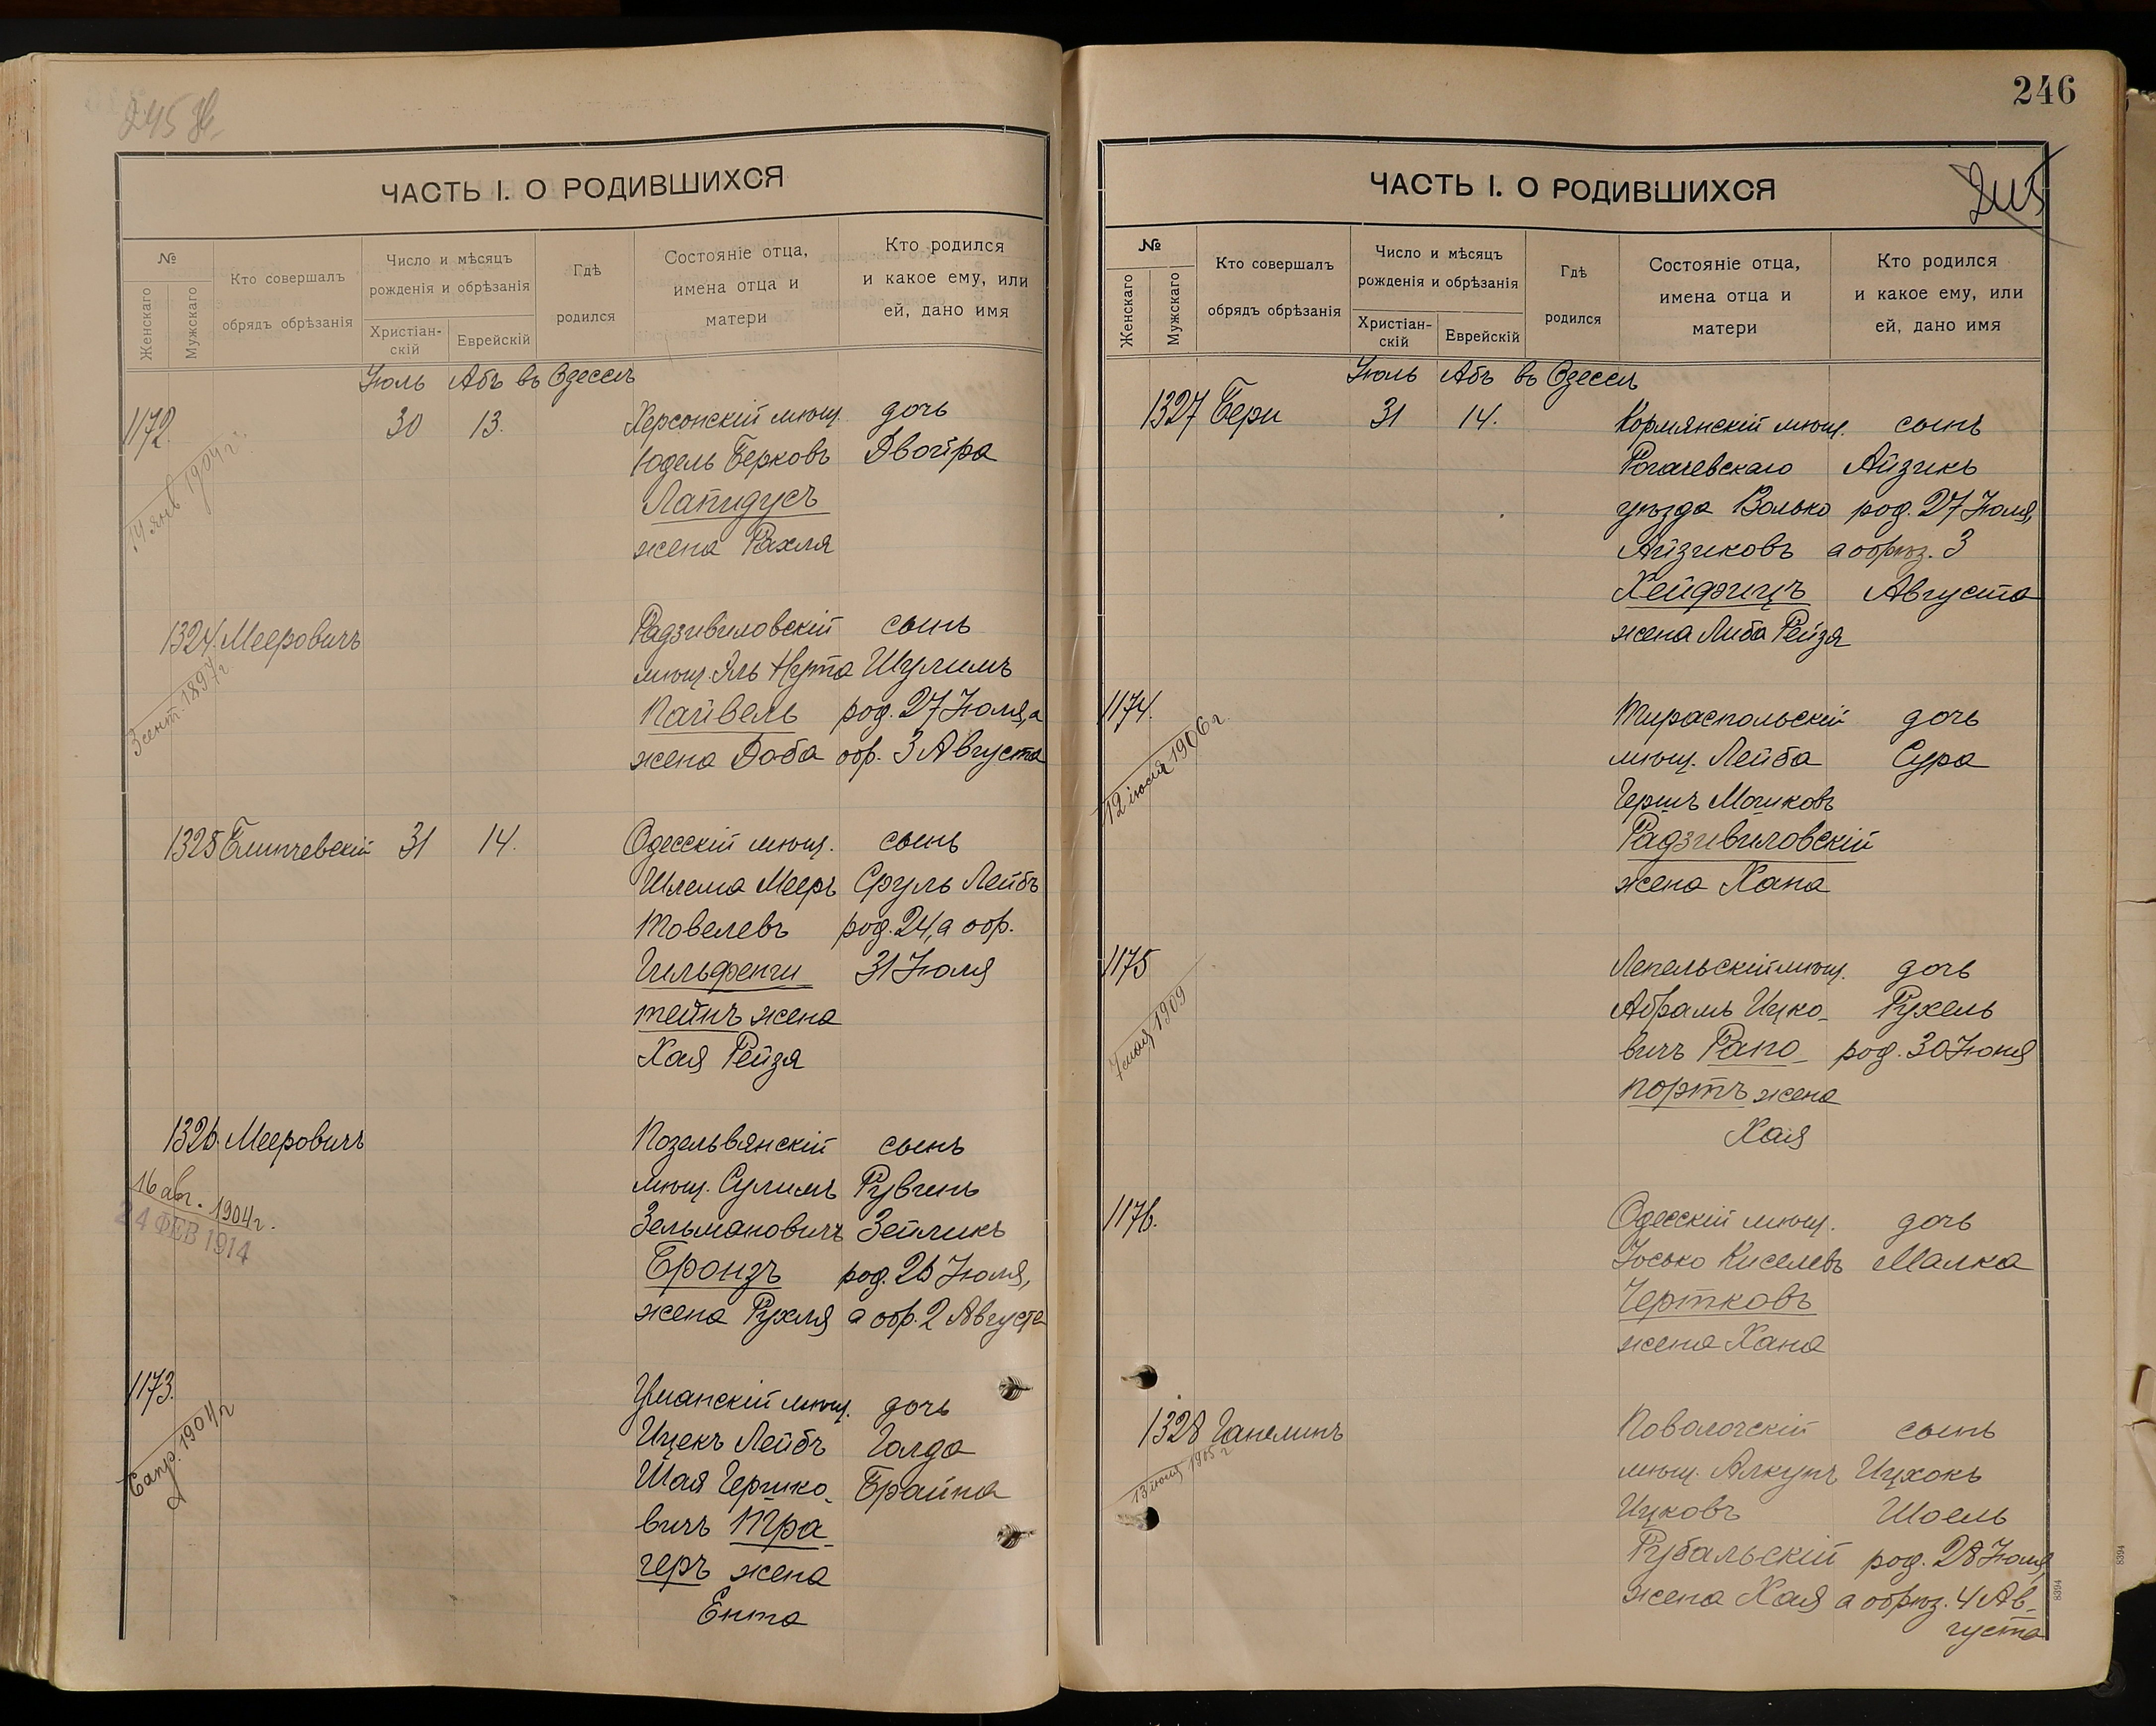 ЧАСТЬ I. О РОДИВШИХСЯ
№
Женскаго
Мужскаго
Кто совершалъ
обрядъ обрѣзанія
Число и мѣсяцъ
рожденія и обрѣзанія
Христіан-
скій
Еврейскій
Гдѣ
родился
Состояніе отца,
имена отца и
матери
Кто родился
и какое ему, или
ей, дано имя
Іюль Абъ въ Одессѣ
1172.
14 янв 1904 г.
30 13.
Херсонскій мѣщ. дочь
Юдель Берковъ Двойра
Лапидусъ
жена Рахля
1324. Мееровичъ
3 сент. 1897 г.
Радзивиловскій сынъ
мѣщ. Эль Нута Шулимъ
Пайвель род. 27 Іюля, а
жена Доба обр. 3 Августа
1325 Блинчевскій 31 14.
Одесскій мѣщ. сынъ
Шлема Мееръ Сруль Лейбъ
Товелевъ род. 24, а обр.
Гильфенги 31 Іюля
тейнъ жена
Хая Рейзя
1326. Мееровичъ
16 авг. 1904 г.
24 ФЕВ 1914
Позельвянскій сынъ
мѣщ. Сулимъ Рувинъ
Зельмановичъ Зейликъ
Бронзъ род. 26 Іюля,
жена Рухля а обр. 2 Августа
1173.
6 апр. 1904 г
Уманскій мѣщ. дочь
Ицекъ Лейбъ Голда
Шая Гершко- Брайна
вичъ Тра-
геръ жена
Ента
246
ЧАСТЬ I. О РОДИВШИХСЯ
№
Женскаго
Мужскаго
Кто совершалъ
обрядъ обрѣзанія
Число и мѣсяцъ
рожденія и обрѣзанія
Христіан-
скій
Еврейскій
Гдѣ
родился
Состояніе отца,
имена отца и
матери
Кто родился
и какое ему, или
ей, дано имя
Іюль Абъ въ Одессѣ
1327 Бери 31 14.
Кормянскій мѣщ. сынъ
Рогачевскаго Айзикъ
уѣзда Волько род. 27 Іюля,
Айзиковъ а обрѣз. 3
Хейфицъ Августа
жена Либа Рейзя
1174.
12 іюля 1906 г.
Тираспольскій дочь
мѣщ. Лейба Сура
Гершъ Мошковъ
Радзивиловскій
жена Хана
1175
7 мая 1909
Лепельскій мѣщ. дочь
Абрамъ Ицко- Рухель
вичъ Рапо- род. 30 Іюня
портъ жена
Хая
1176.
Одесскій мѣщ. дочь
Іосько Киселевъ Малка
Чертковъ
жена Хана
1328 Ганелинъ
13 1905 г
Поволочскій сынъ
мѣщ. Алкунъ Ицхокъ
Ицковъ Шоель
Рубальскій род. 28 Іюля,
жена Хая а обрѣз. 4 Ав-
густа
8394
8394